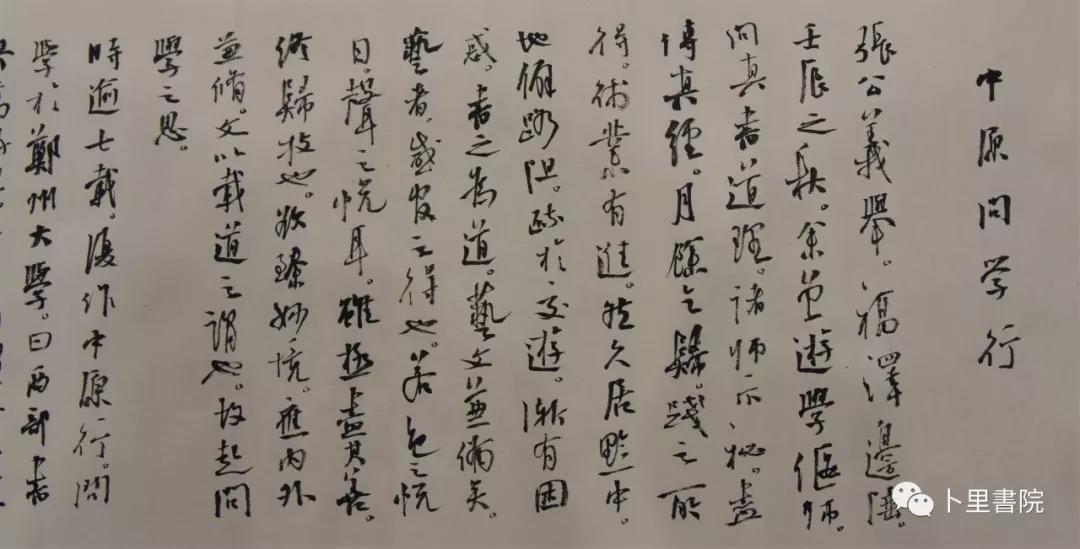 中原问学行
張公義舉。福澤邊陲。
壬辰之秋。余遊學偃師。
问真書道理。诸师示秘。盡
傳真經。月餘乞歸。踐之所
得。術業有進。然久居黔中。
地僻路阻。疏於交遊。漸有困
惑。書之為道。藝文兼備矣。
藝者。感官之得也。若色之悦
目。聲之悦耳。雖極盡其善。
终歸技也。欲臻妙境。應内外
兼脩。文以載道之謂也。故起問
學之思。
時逾七載。復作中原行。問
學於鄭州大學。曰西部書
卜里書院